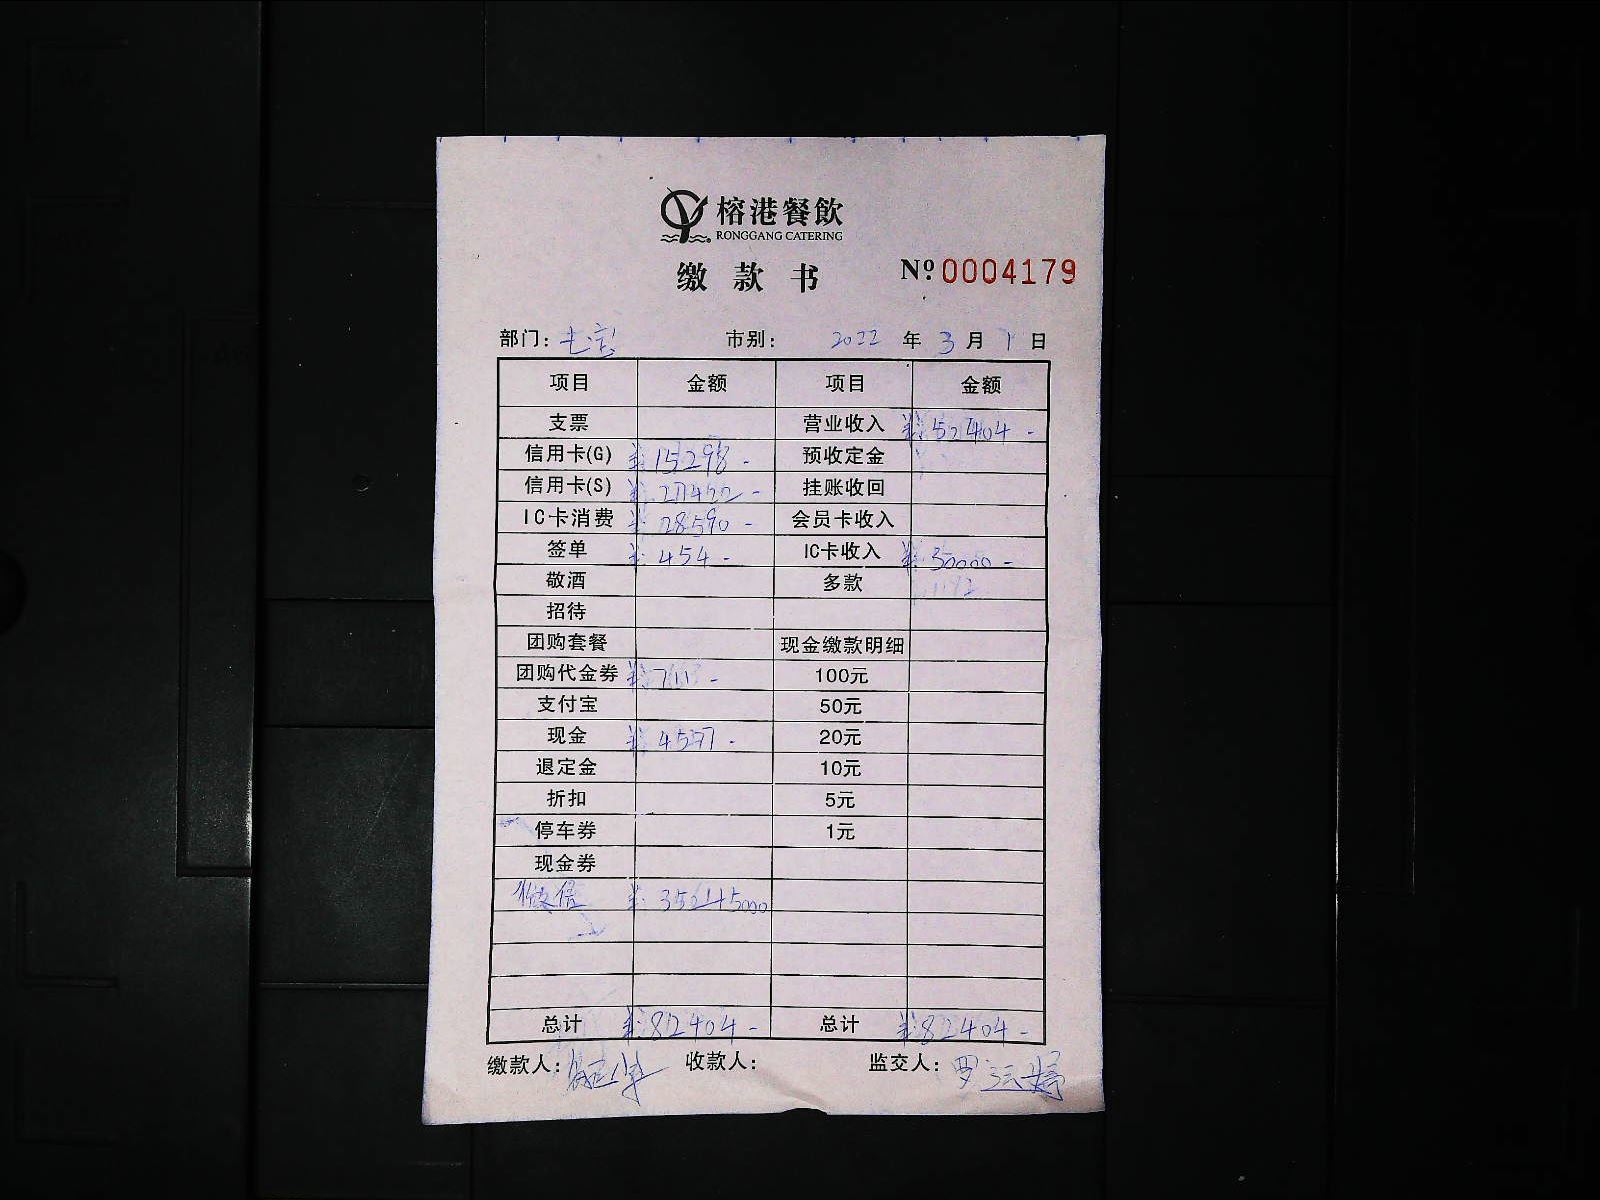 榕港餐飲
RONGGANG CATERING
缴款书 Nº 0004179
部门: 市别: 2022 年 3 月 1 日
项目 金额 项目 金额
支票 营业收入 ¥: 52404 -
信用卡(G) ¥: 15298 - 预收定金
信用卡(S) ¥: 挂账收回
IC卡消费 ¥: 28590 - 会员卡收入
签单 ¥: 454 - IC卡收入 ¥: 30000 -
敬酒 多款
招待
团购套餐 现金缴款明细
团购代金券 ¥: 100元
支付宝 50元
现金 ¥: 20元
退定金 10元
折扣 5元
停车券 1元
现金券
微信 ¥:
总计 ¥: 82404 - 总计 ¥: 82404 -
缴款人: 收款人: 监交人: 罗